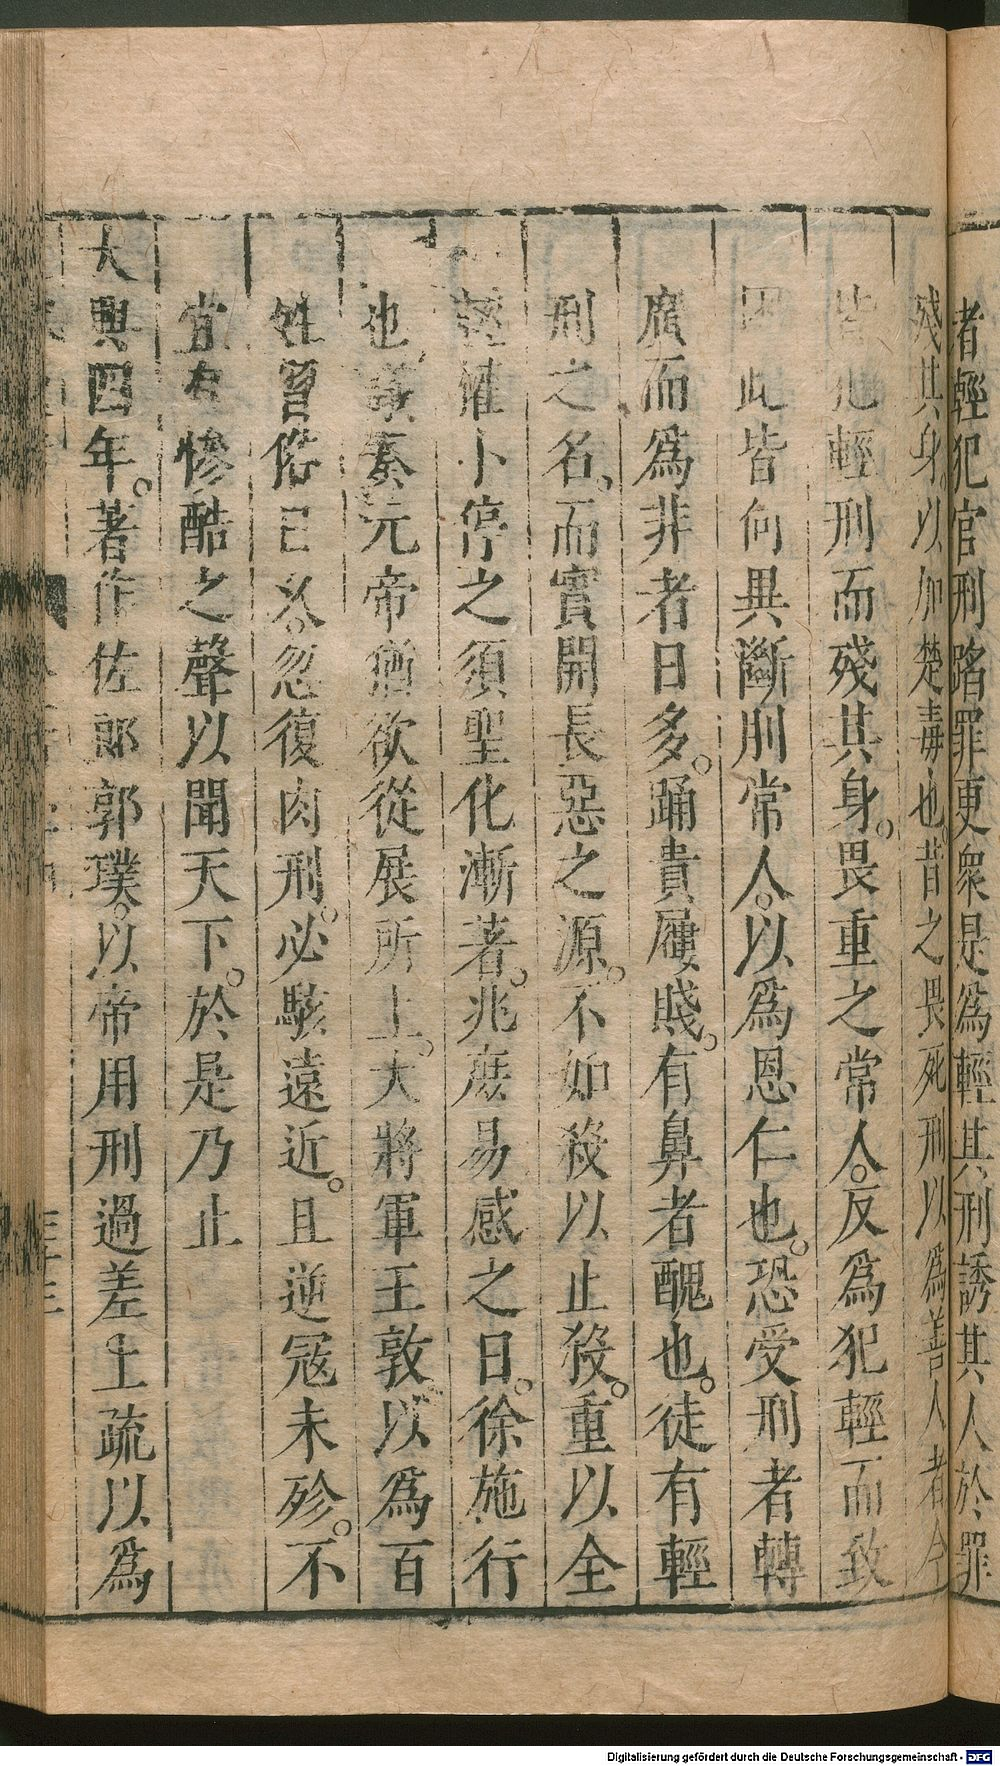 者輕犯官刑蹈罪更衆是爲輕其刑誘其人於罪
殘其身。以加楚毒也。昔之畏死刑以爲善人者今
皆犯輕刑而殘其身。畏重之常人。反爲犯輕而致
囚此皆何異斷刖常人。以爲恩仁也。恐受刑者轉
廣而爲非者日多。踊貴屨賤。有鼻者醜也。徒有輕
刑之名。而實開長惡之源。不如殺以止殺。重以全
輕權小停之須聖化漸著。兆庶易感之日。徐施行
也議奏元帝猶欲從展所上。大將軍王敦以爲百
姓習俗已久。忽復肉刑。必駭遠近。且逆寇未殄。不
宜有慘酷之聲以聞天下。於是乃止
大興四年。著作佐郎郭璞。以帝用刑過差上疏以爲
Digitalisierung gefördert durch die Deutsche Forschungsgemeinschaft - DFG